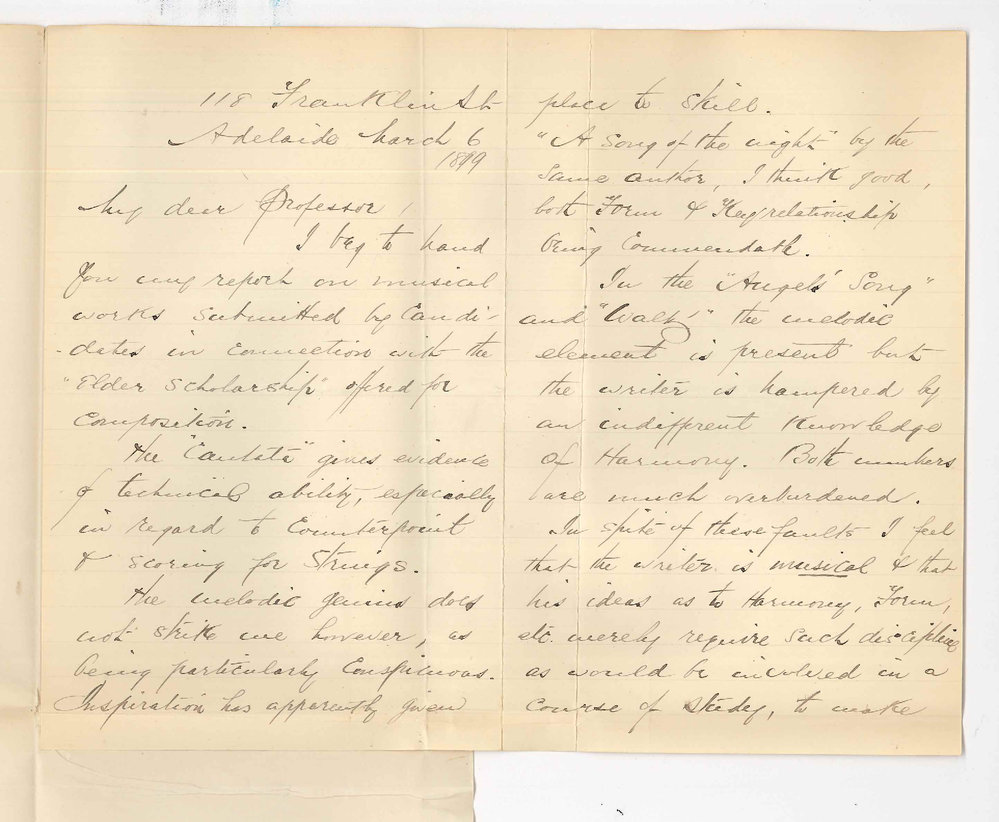 118 Franklin St
Adelaide March 6
1899
My dear Professor /
I beg to hand
you my report on musical
works submitted by Candi-
-dates in connection with the
"Elder Scholarship" offered for
Composition.
The "Cantata" gives evidence
of technical ability, especially
in regard to Counterpoint
& scoring for Strings.
The melodic genius does
not strike me however, as
being particularly Conspicuous.
Inspiration has apparently given
place to skill.
"A Song of the night" by the
same author, I think good,
both Form & Key relationship
being Commendable.
In the "Angels' Song"
and "Waltz" the melodic
element is present but
the writer is hampered by
an indifferent knowledge
of Harmony. Both numbers
are much overburdened.
In spite of these faults I feel
that the writer is musical & that
his ideas as to Harmony, Form,
etc. merely require such discipline
as would be involved in a
course of study, to make